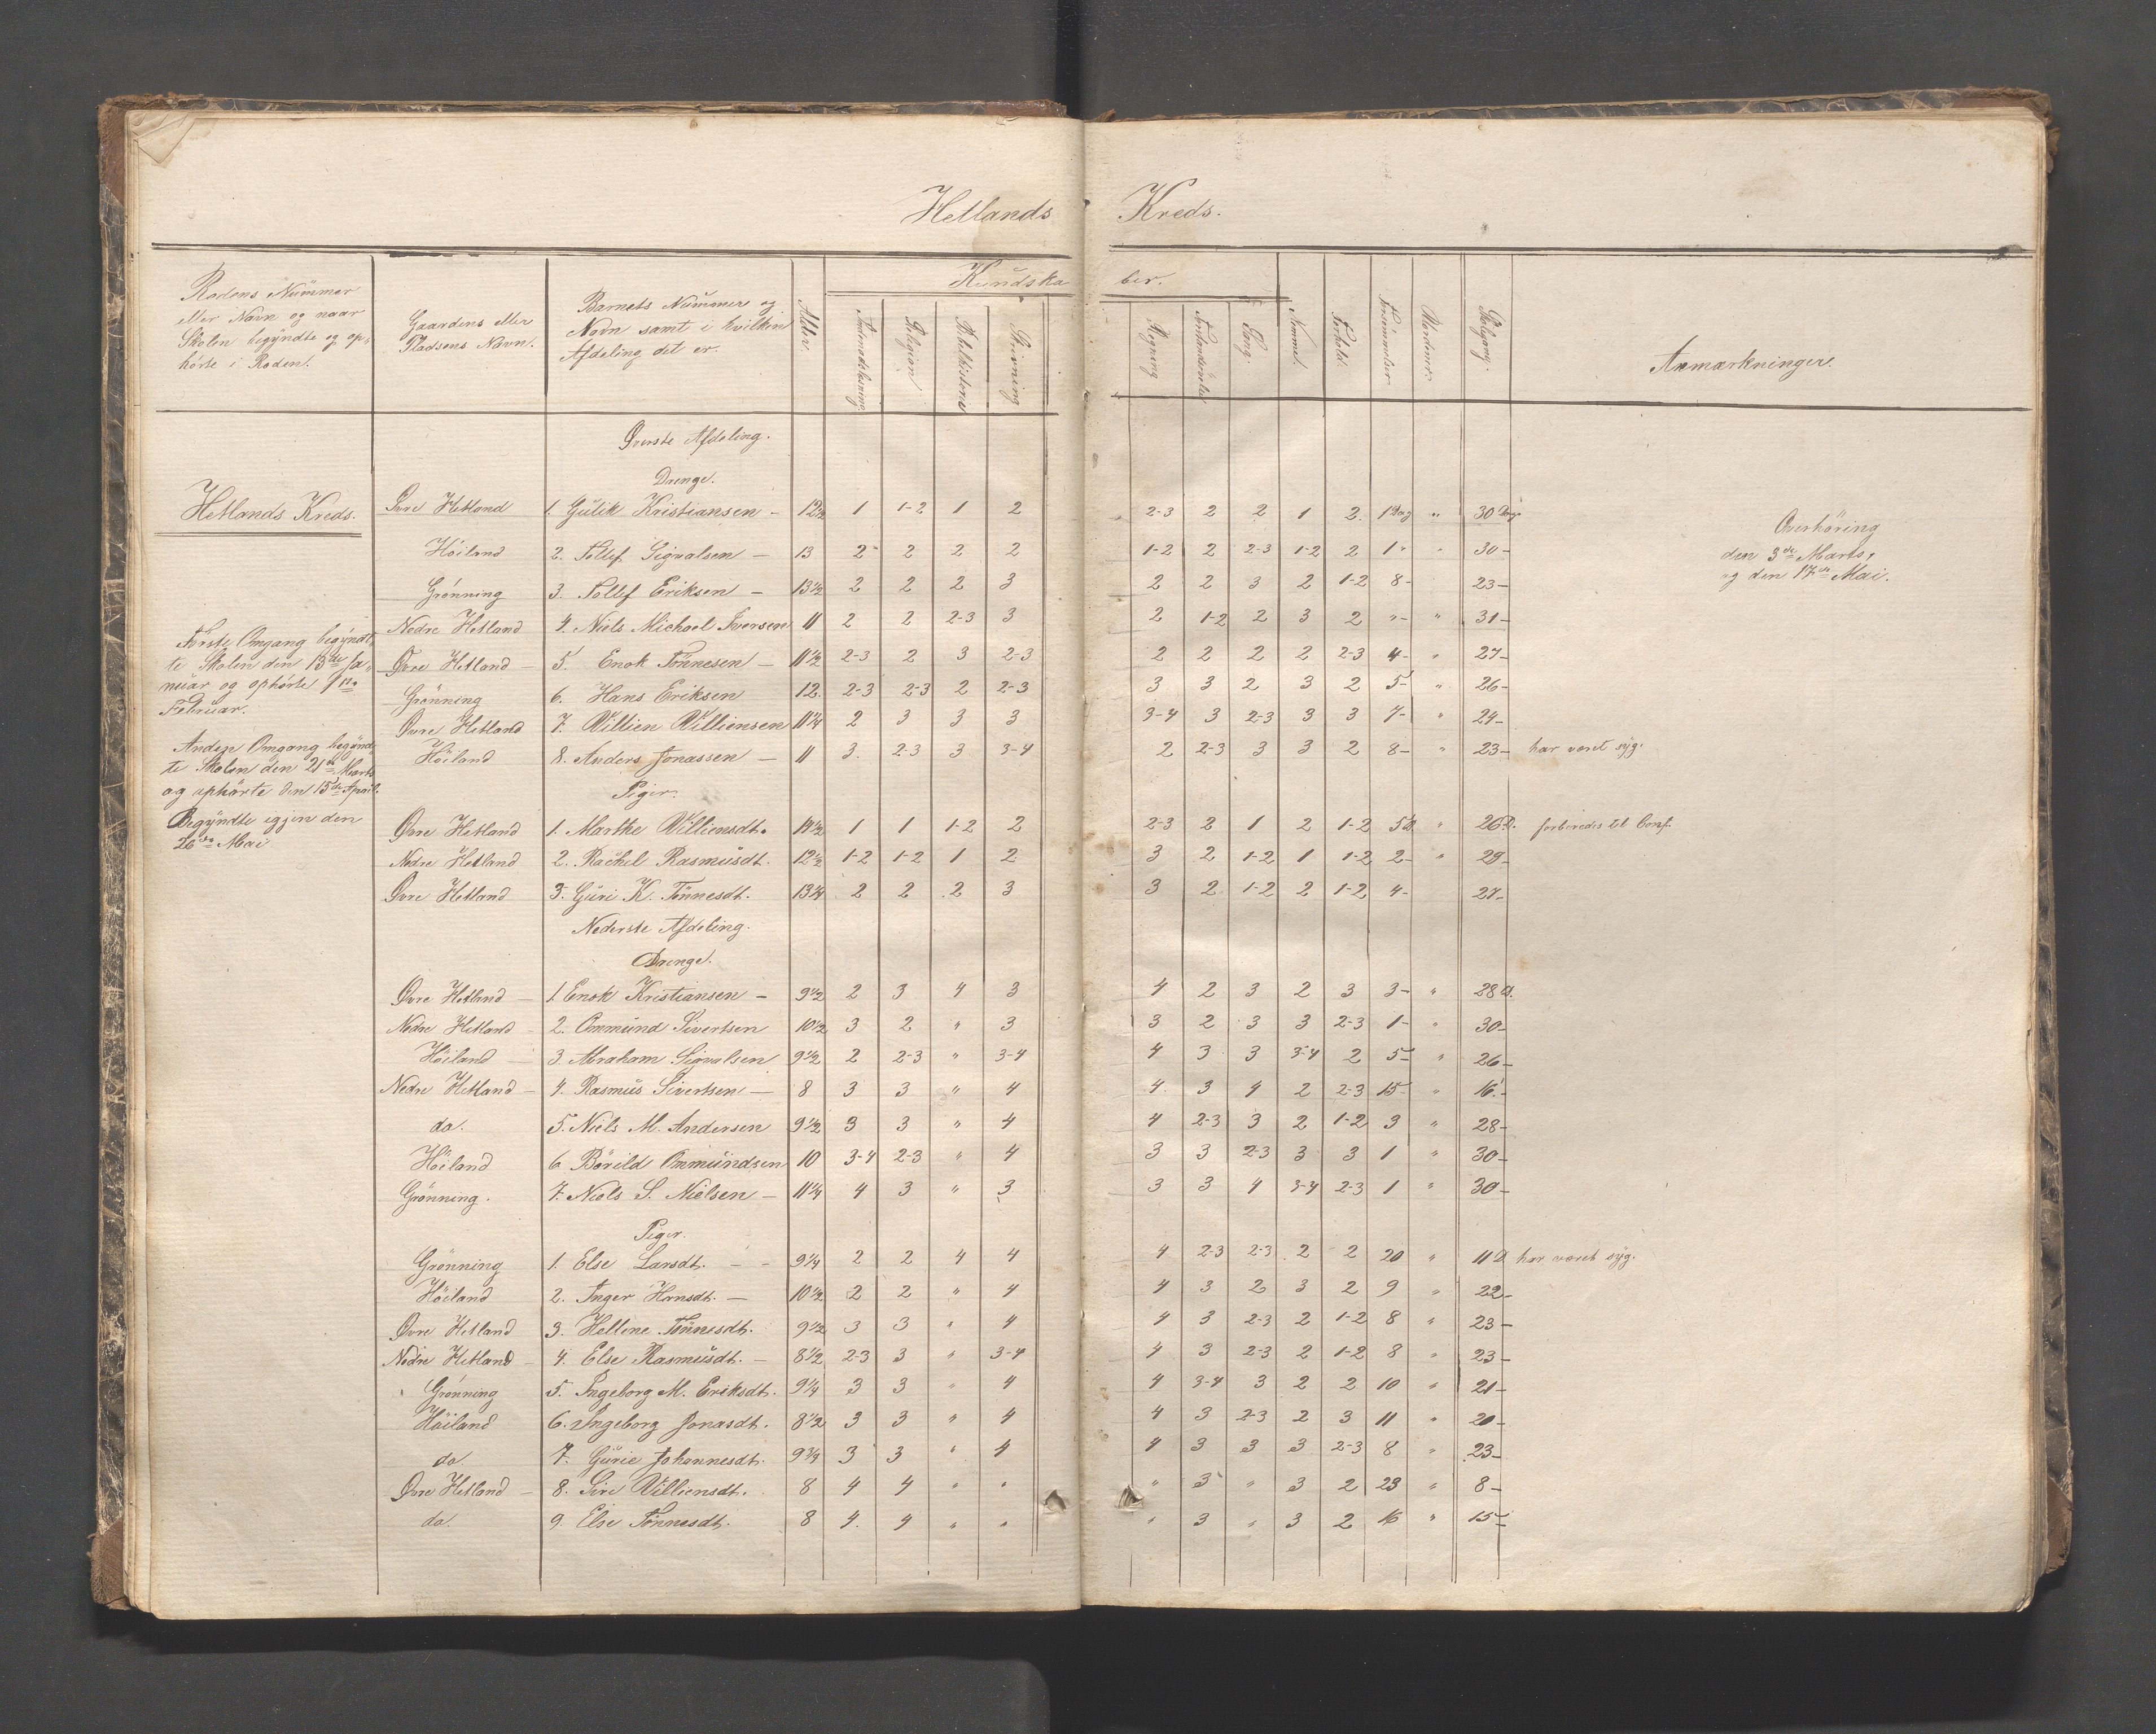 Hetlands Kreds.
Rodens Nummer eller Navn og naar Skolen begyndte og ophørte i Roden.
Gaardens eller Pladsens Navn.
Barnets Nummer og Navn samt i hvilken Afdeling det er.
Alder
Kundskaber.
Religion
Bibelhistorie
Skrivning
Regning
Sang.
Forhold.
Forsømmelser
Skolgang.
Anmærkninger.
Øverste Afdeling.
Drenge.
Hetlands Kreds.
Øvre Hetland 1. Gulik Kristiansen - 12½ 1 1-2 1 2 2-3 2 2 1 2. 1 Dag " 30 Dage
Höiland 2. Tollef Sigvalsen - 13 2 2 2 2 1-2 2 2-3 1-2 2 1 " " 30-
Grønning 3. Tollef Eriksen - 13½ 2 2 2 3 2 2 3 2 1-2 8- 23-
Nedre Hetland 4. Niels Michael Iversen 11 2 2 2-3 3 2 1-2 2 3 2 "- " 31-
Øvre Hetland - 5. Enok Tønnesen - 11½ 2-3 2 3 2-3 2 2 2 2 2-3 4- " 27-
Grønning 6. Hans Eriksen 12. 2-3 2-3 2 2-3 3 3 2 3 2 5- " 26-
Øvre Hetland 7. Villien Williensen 11¼ 2 3 3 3 3-4 3 2-3 3 3 7- " 24-
Höiland 8. Anders Jonassen - 11 3. 2-3 3 3-4 2 2-3 3 3 2 8- " 23- har været syg.
Overhöring
den 3de Marts,
og den 17de Mai.
Første Omgang begyndte Skolen den 13de Januar og ophørte Februar.
Anden Omgang begyndte Skolen den 21de Marts og ophørte den 15de April.
Begyndte igjen den 26de Mai
Piger.
Øvre Hetland 1. Marthe Williensdt. 14½ 1 1 1-2 2 2-3 2 1 2 1-2 5D. " 26D. forberedes til Conf.
Nedre Hetland 2. Rachel Rasmusdt. 12½ 1-2 1-2 1 2 3 2 1-2 1 1-2 2- " 29-
Øvre Hetland 3. Guri K. Tønnesdt. 13¼ 2 2 2 3 3 2 1-2 2 1-2 4- 27-
Nederste Afdeling.
Drenge.
Øvre Hetland - 1. Enok Kristiansen - 9½ 2 3 4 3 4 2 3 2 3 3- " 28D.
Nedre Hetland - 2. Ommund Sivertsen 10½ 3 2 " 3 3 2 3 3 2-3 1- " 30-
Höiland - 3. Abraham Sigvalsen 9½ 2 2-3 " 3-4 4 3 3 3-4 2 5- " 26-
Nedre Hetland - 4. Rasmus Sivertsen - 8 3 3 " 4 4 3 4 2 2-3 15- " 16.-
do. 5. Niels M. Andersen 9½ 3 3 " 4 4 2-3 3 2 1-2 3 " 28-
Höiland 6. Bårild Ommundsen 10 3-4 2-3 " 4 3 3 2-3 3 3 1 " 30-
Grønning. 7. Niels S. Nielsen - 11¼ 4 3 " 3 3 3 4 3-4 2-3 1 " 30-
Piger.
Grønning 1. Else Larsdt. - - 9¼ 2 2 4 4 4 2-3 2-3 2 2 20 " 11D har været syg.
Höiland 2. Inger Hansdt. - 10½ 2 2 " 4 4 3 2 3 2 9 " 22-
Øvre Hetland 3. Hellene Tønnesdt. 9½ 3 3 " 4 4 3 2-3 2 1-2 8 " 23-
Nedre Hetland - 4. Else Rasmusdt. - 8½ 2-3 3 " 3-4 4 3 2-3 2 1-2 8 " 23-
Grønning 5. Ingeborg M. Eriksdt. 9¼ 3 3 " 4 4 3-4 3 2 2 10 " 21-
Höiland 6. Ingeborg Jonasdt. 8½ 3 3 " 4 4 3 2-3 2 3 11 " 20-
do. 7. Gurie Johannesdt. 9¾ 3 3 " 4 4 3 3 3 2-3 8 " 23-
Øvre Hetland - 8. Siri Williensdt. 8 4 4 " " " 3 " 3 2 23 " 8-
do. 9. Else Tønnesdt. 8 4. 4 " " " 3 " 3 2 16 " 15-